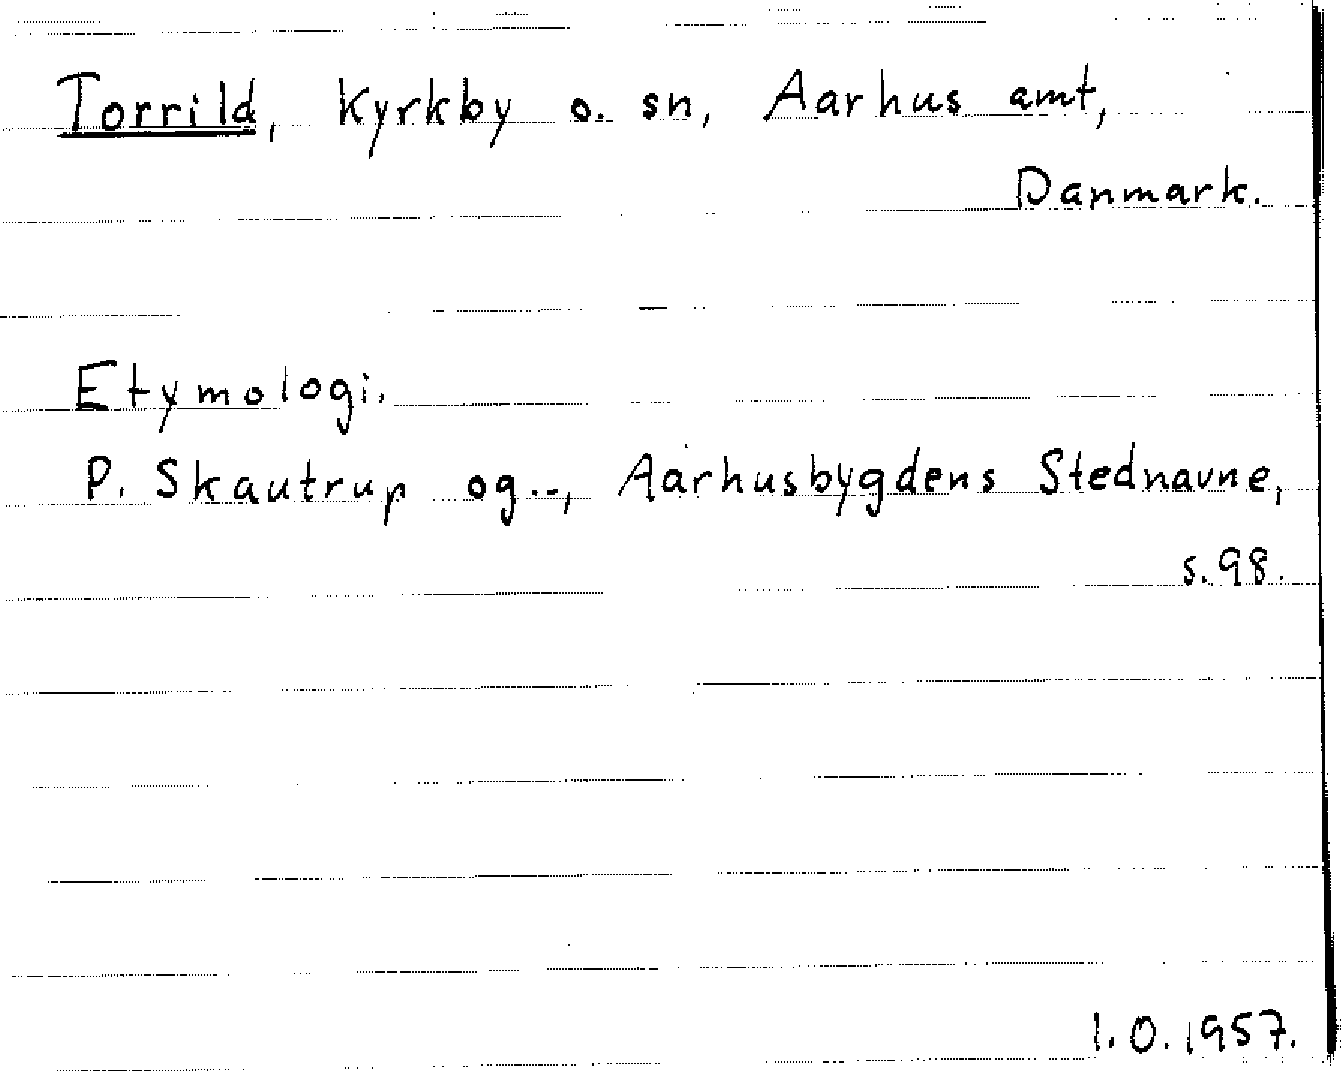 Torrild, Kyrkby o. sn, Aarhus amt,
Danmark.
Etymologi.
P. Skautrup og.., Aarhusbygdens Stednavne,
s. 98.
I. O. 1957.